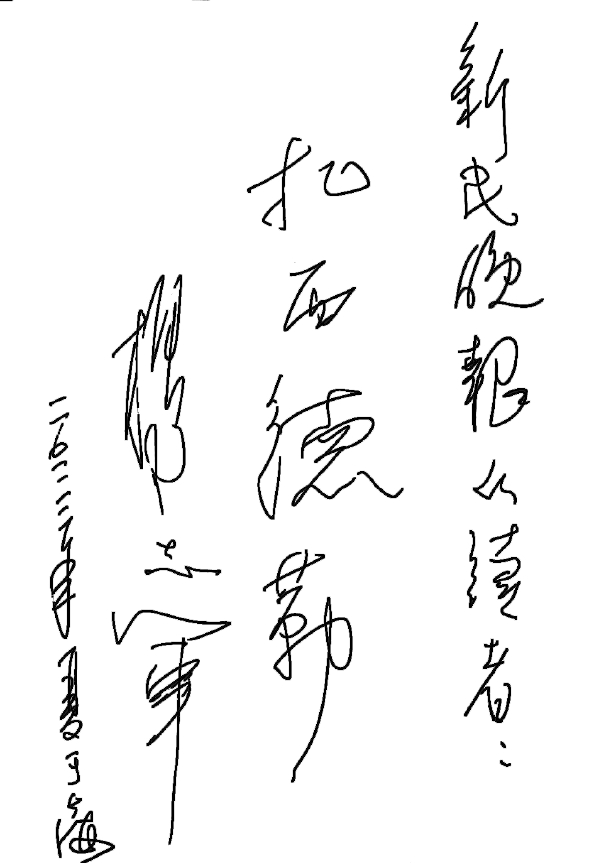 新民晚報的讀者：
扎西德勒
楊志軍
二〇二三年夏于上海